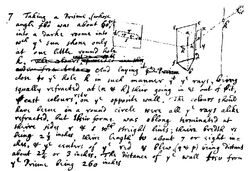 7 Taking a Prisme, (whose
angle fbd was about 60gr)
into a darke roome into
wch ye sun shone only
at one little round hole
k
close to ye hole k in such manner yt ye rays, being
equally refracted at (n & h) their going in & out of it,
cast colours rstv on ye opposite wall. The colours should
have beene in a round circle were all ye rays alike
refracted, but their forme was oblong terminated at
theire sides r & s wth streight lines; theire bredth rs
being 2 1/3 inches, theire length to about 7 or eight in-
ches, & ye centers of ye red & blew (q & p) being distant
about 2 3/4 or 3 inches. The distance of ye wall from
ye Prisme being 260 inches